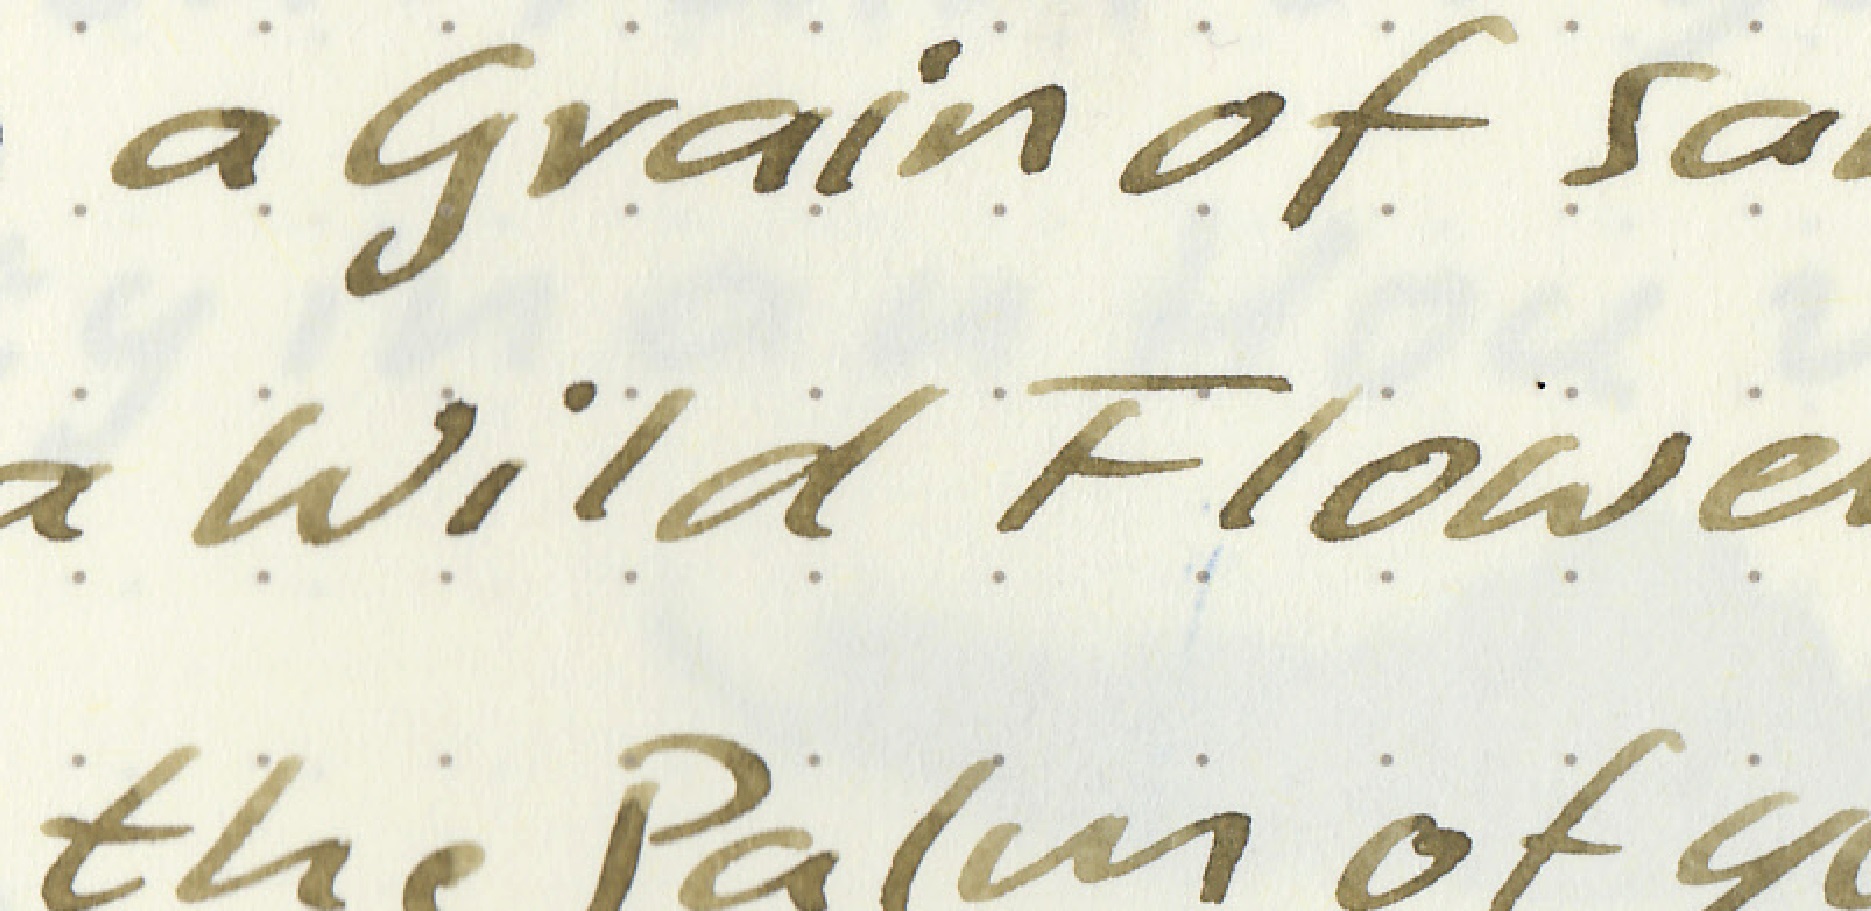 a Grain of Sa
a Wild Flowe
the Palm of yo